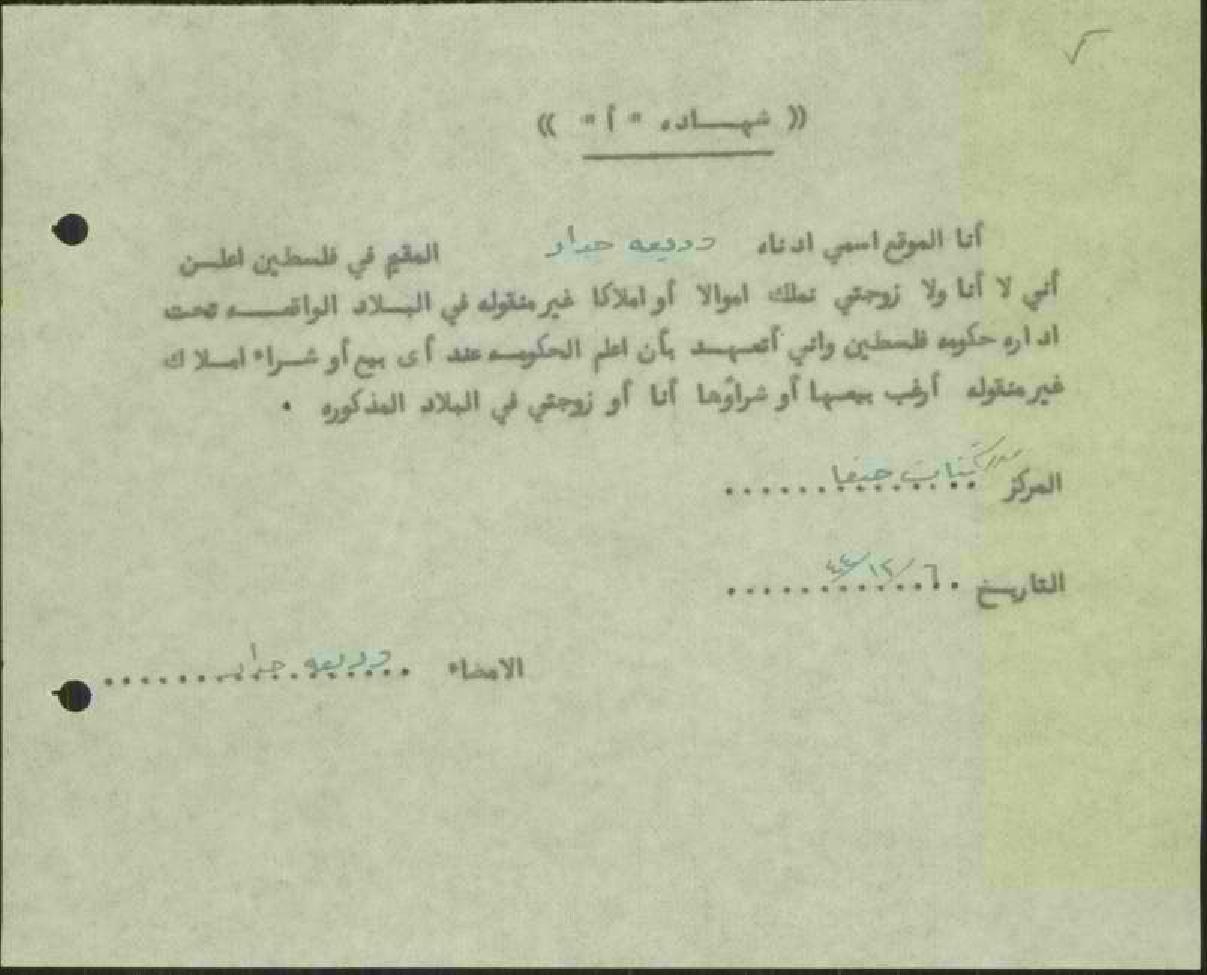 (( شهـــاده " أ " ))
أنا الموقع اسمي ادناه وديعه حداد المقيم في فلسطين اعلـــن
أني لا أنا ولا زوجتي نملك اموالا أو املاكا غير منقوله في البـــلاد الواقعـــه تحت
اداره حكومه فلسطين واني أتعهـــد بأن اعلم الحكومـــه عند أى بيع أو شـــراء امـــلاك
غير منقوله أرغب بيعـــها أو شراؤها أنا أو زوجتي في البلاد المذكوره .
المركز مدرسة بنات حيفا
التاريـــخ ٦/١٢/٤٤
الامضاء وديعه حداد